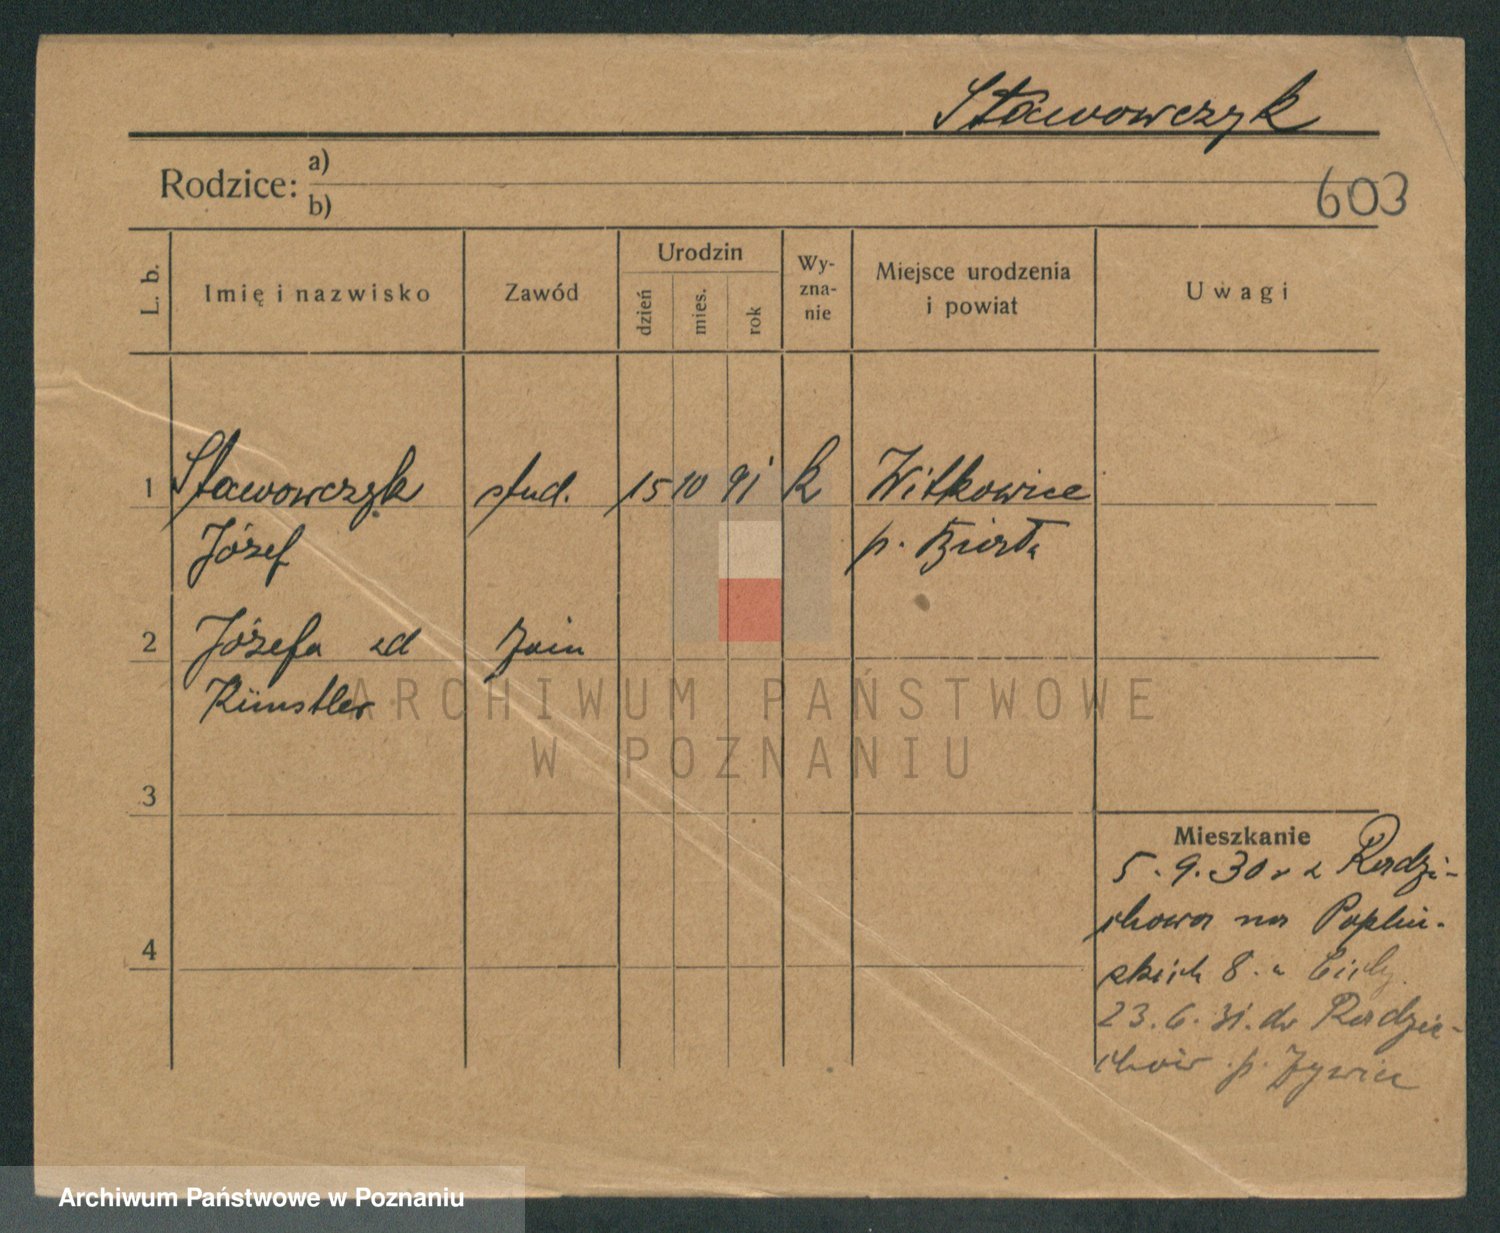 Stawowczyk
Rodzice: a)
b)
603
L. b.
Imię i nazwisko
Zawód
Urodzin
dzień
mies.
rok
Wy-
zna-
nie
Miejsce urodzenia
i powiat
Uwagi
1 Stawowczyk stud. 15 10 91 k Witkowice
Józef p. Biała
2 Józefa zd
Künstler
3
4
Mieszkanie
5.9.30 z Radzi-
chowa na Popliń-
skich 8.
23.6.31. do Radzie-
chów p. Żywiec
ARCHIWUM PAŃSTWOWE
W POZNANIU
Archiwum Państwowe w Poznaniu